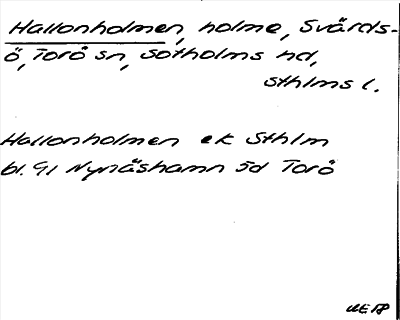 Hallonholmen, holme, Svärds-
ö, Torö sn, Sotholms hd,
Sthlms l.
Hallonholmen ek Sthlm
bl. 91 Nynäshamn 5d Torö